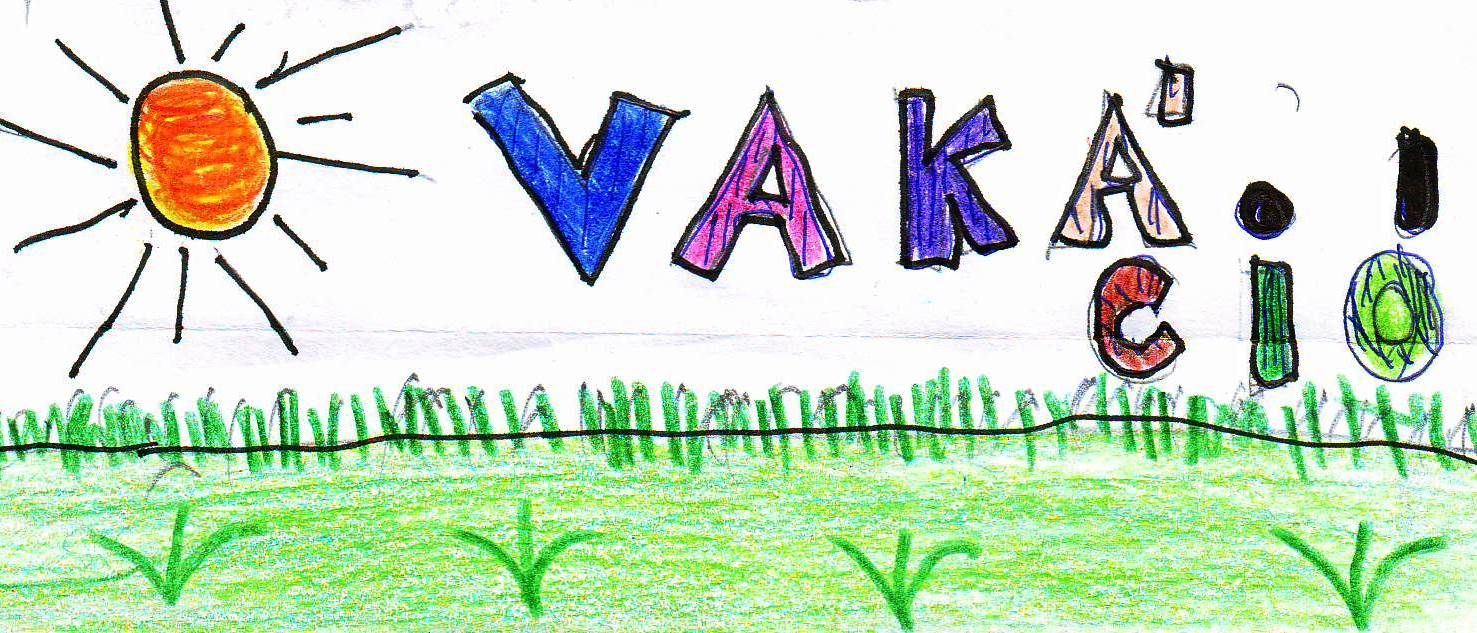 VAKÁ
CIÓ